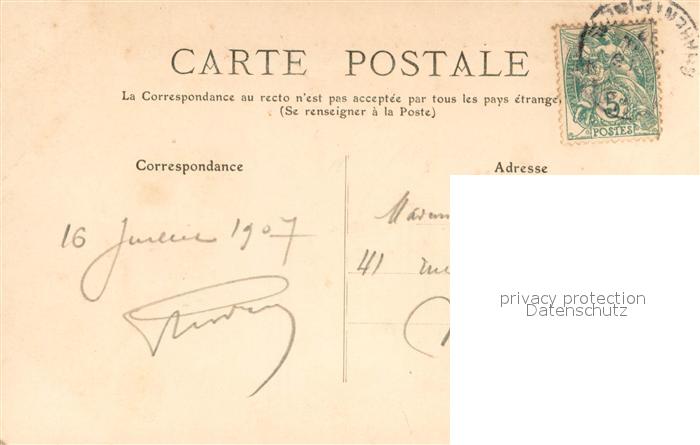 CARTE POSTALE
La Correspondance au recto n'est pas acceptée par tous les pays étrange
(Se renseigner à la Poste)
5
POSTES
Correspondance
Adresse
16 Juillet 1907
41 rue
privacy protection
Datenschutz